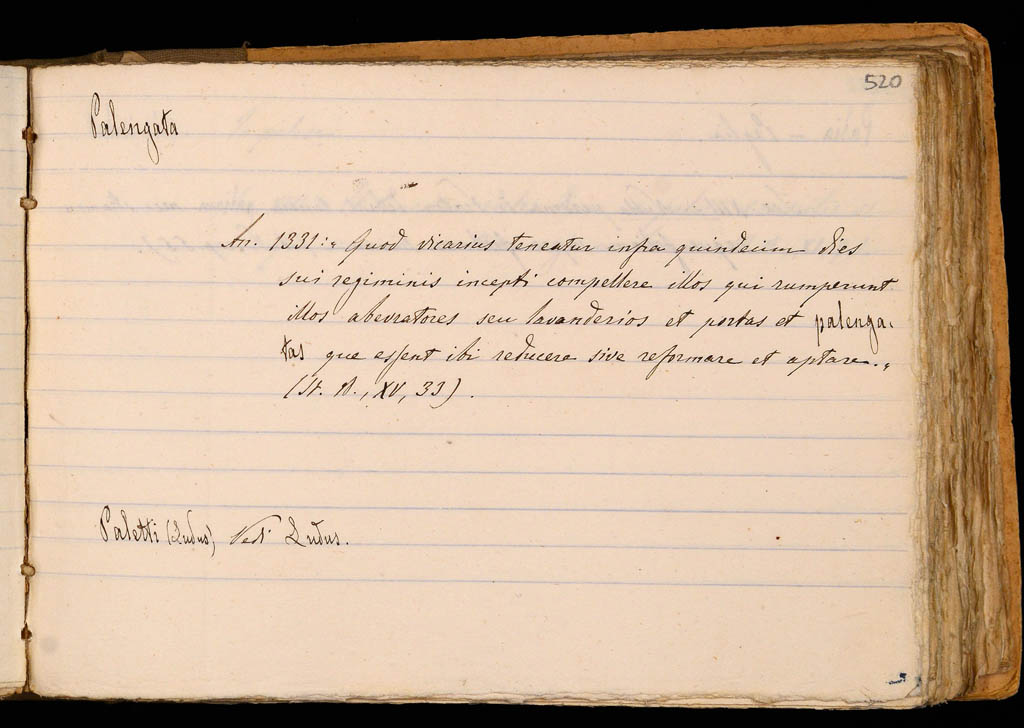 520
Palengata
An. 1331: „ Quod vicarius teneatur infra quindecim dies
sui regiminis incepti compellere illos qui rumperunt
illos abevratores seu lavanderios et portas et palenga-
tas que essent ibi reducere sive reformare et aptare. „
(St. B., XV, 33).
Paletti (Ludus) Vedi Ludus.